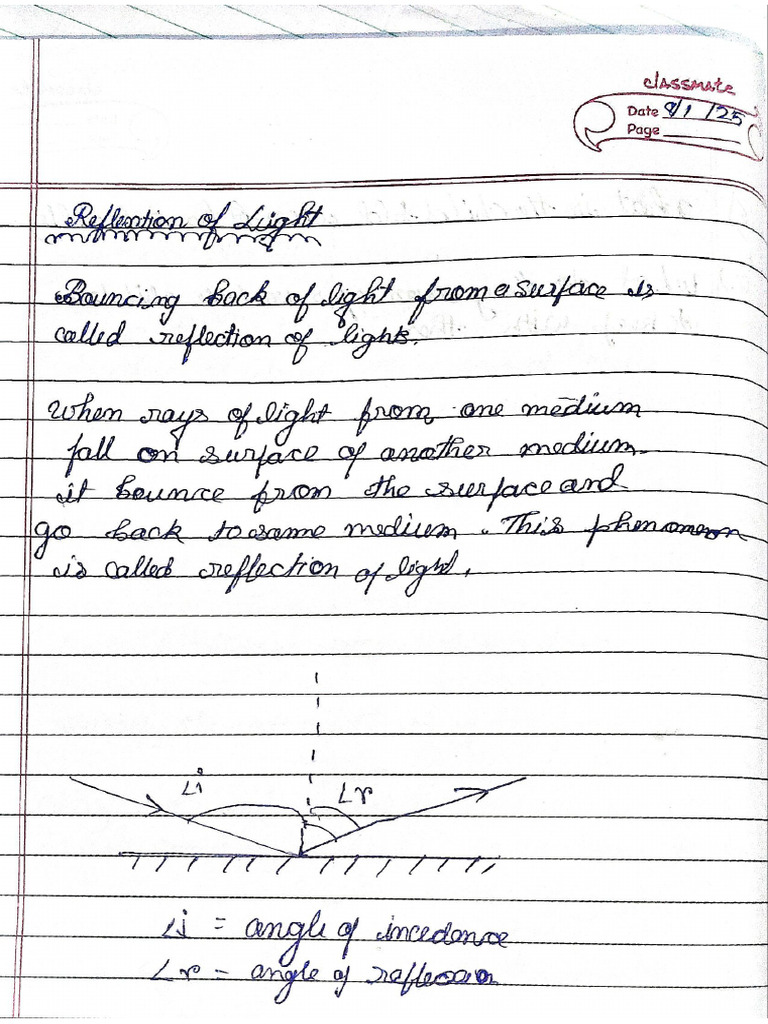 classmate
Date 8/1/25
Page
Reflention of Light
Bouncing back of light from a surface is
called reflection of lights.
When rays of light from one medium
fall on surface of another medium
it bounce from the surface and
go back to same medium. This phenomenon
is called reflection of light.
∠i ∠r
∠i = angle of incedance
∠r = angle of